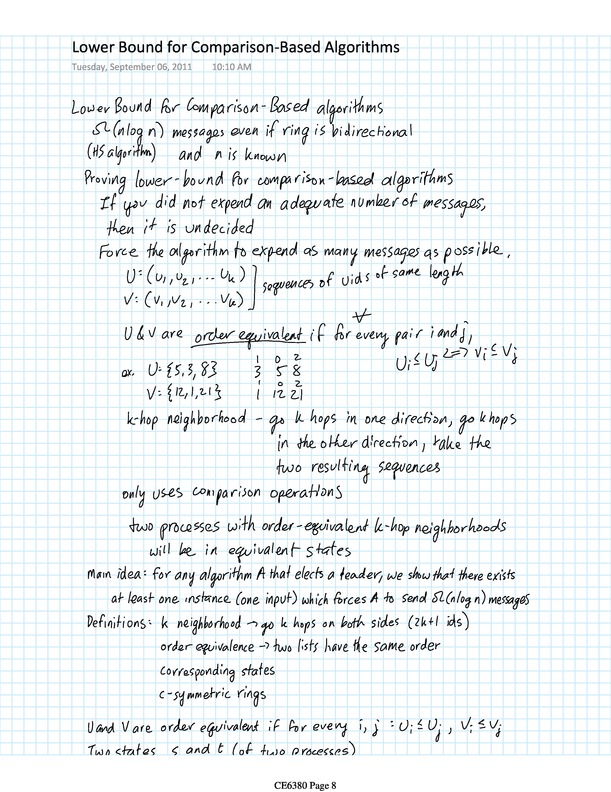 Lower Bound for Comparison-Based Algorithms
Tuesday, September 06, 2011 10:10 AM
Lower Bound for Comparison-Based algorithms
Ω(nlog n) messages even if ring is bidirectional
(HS algorithm) and n is known
Proving lower-bound for comparison-based algorithms
If you did not expend an adequate number of messages,
then it is undecided
Force the algorithm to expend as many messages as possible.
U=(u₁,u₂,... uₖ)
V=(v₁,v₂,... vₖ)
sequences of uids of same length
∀
U & V are order equivalent if for every pair i and j,
Uᵢ≤Uⱼ <=> Vᵢ≤Vⱼ
1 0 2
ex. U={5,3,8} 3 5 8
1 0 2
V={12,1,21} 1 12 21
k-hop neighborhood - go k hops in one direction, go k hops
in the other direction, take the
two resulting sequences
only uses comparison operations
two processes with order-equivalent k-hop neighborhoods
will be in equivalent states
Main idea: for any algorithm A that elects a leader, we show that there exists
at least one instance (one input) which forces A to send Ω(nlogn) messages
Definitions: k neighborhood → go k hops on both sides (2k+1 ids)
order equivalence → two lists have the same order
corresponding states
c-symmetric rings
U and V are order equivalent if for every i, j : Uᵢ≤Uⱼ , Vᵢ≤Vⱼ
Two states s and t (of two processes)
CE6380 Page 8